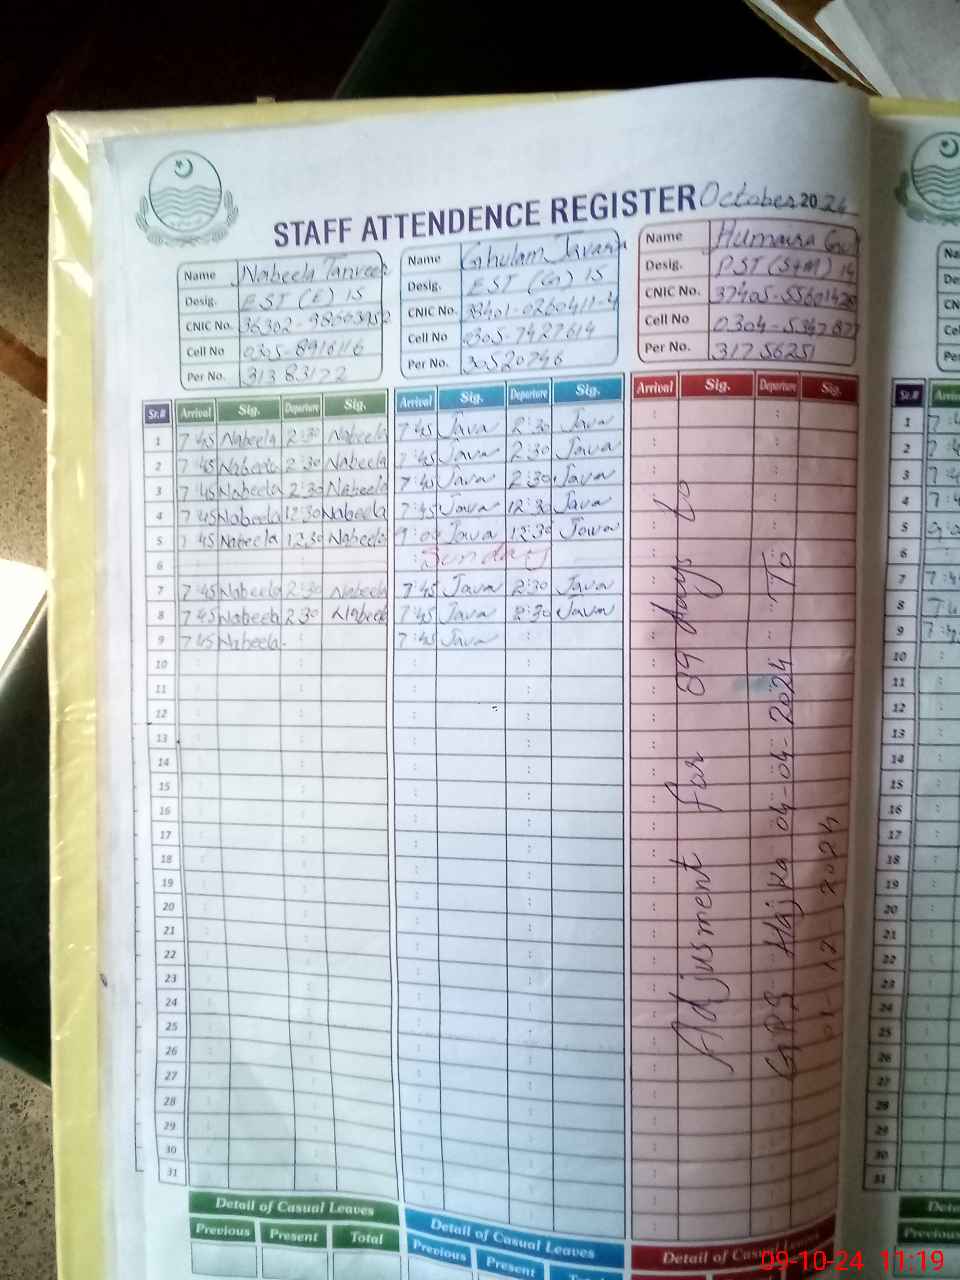 STAFF ATTENDENCE REGISTER October 2024
Name Nabeela Tanveer
Desig. EST (E) 15
CNIC No.
Cell No
Per No. 31383172
Name Ghulam
Desig. EST (G) 15
CNIC No. 38401-0260411-4
Cell No 0305-7427614
Per No. 30520746
Name Humaira Gul
Desig. PST (S+M) 14
CNIC No.
Cell No
Per No. 31756251
Sr.# Arrival Sig. Departure Sig. Arrival Sig. Departure Sig. Arrival Sig. Departure Sig.
1 7:45 Nabeela 2:30 Nabeela 7:45 Java 2:30 Java
2 7:45 Nabeela 2:30 Nabeela 7:45 Java 2:30 Java
3 7:45 Nabeela 2:30 Nabeela 7:45 Java 2:30 Java
4 7:45 Nabeela 12:30 Nabeela 7:45 Java 12:30 Java
5 7:45 Nabeela 12:30 Nabeela 9:00 Java 12:30 Java
6 Sunday
7 7:45 Nabeela 2:30 Nabeela 7:45 Java 2:30 Java
8 7:45 Nabeela 2:30 Nabeela 7:45 Java 2:30 Java
9 7:45 Nabeela 7:45 Java
10
11
12
13
14
15
16
17
18
19
20
21
22
23
24
25
26
27
28
29
30
31
Adjusment for 89 days to
GPS Hajka 04-04-2024 To
01-12-2024
Detail of Casual Leaves
Previous Present Total
Detail of Casual Leaves
Previous Present
Detail of Casual Leaves
Sr.#
1
2
3
4
5
6
7
8
9
10
11
12
13
14
15
16
17
18
19
20
21
22
23
24
25
26
27
28
29
30
31
09-10-24 11:19